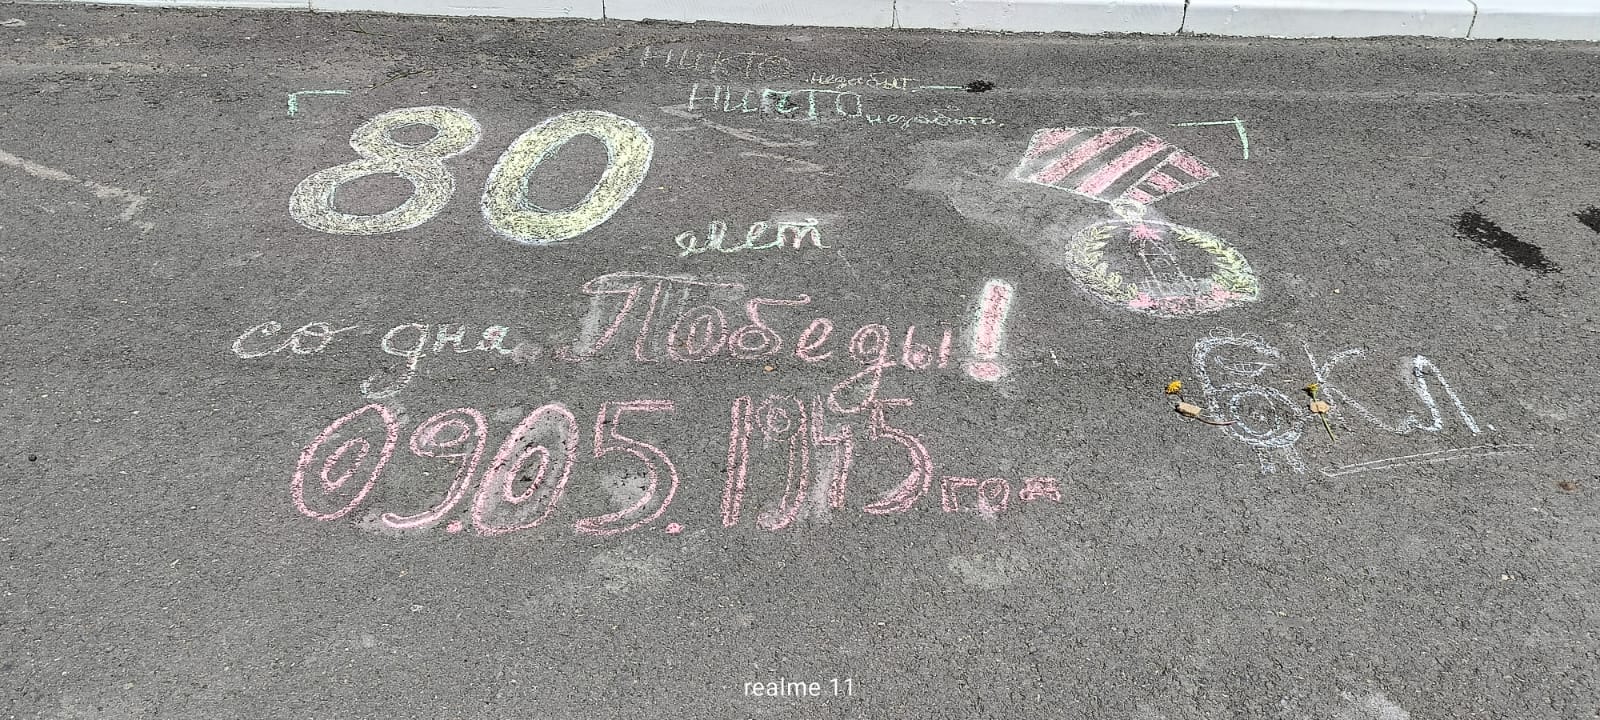 никто не забыт
никто не забыто
80
лет
со дня Победы!
09.05.1945 год
6 кл.
realme 11